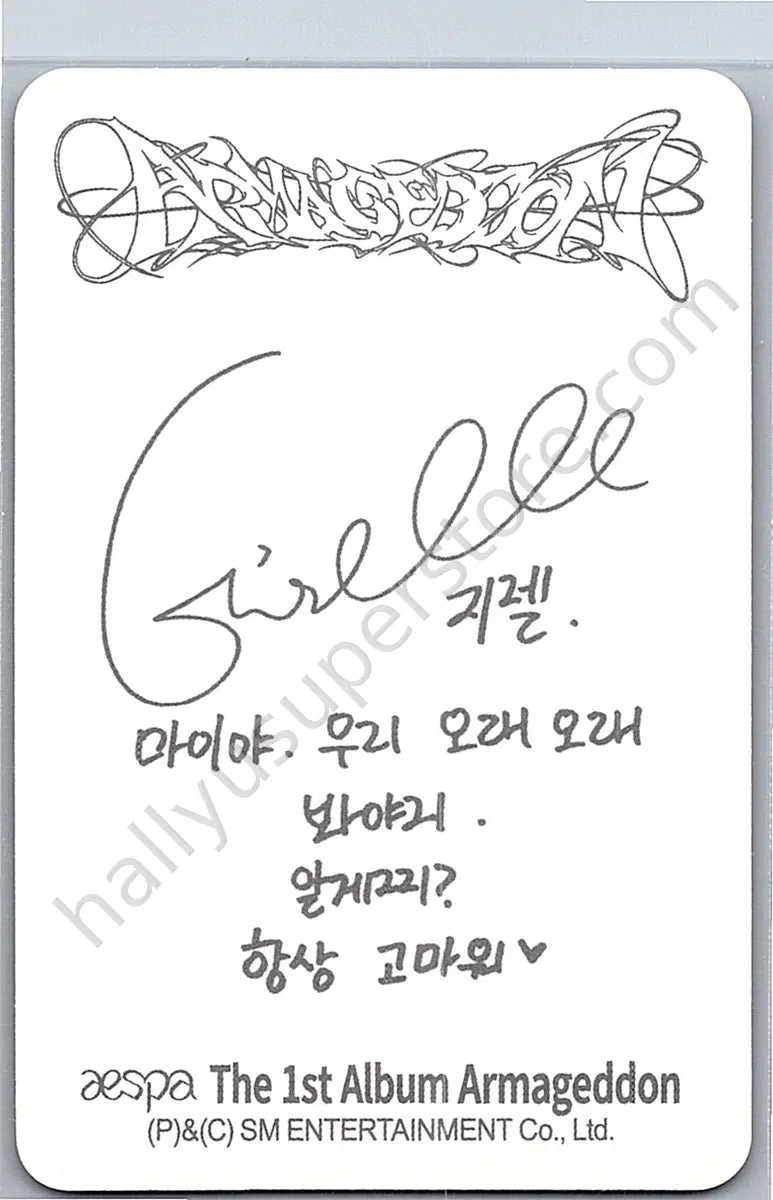 ARMAGEDDON
Giselle
지젤.
마이야. 우리 오래 오래
봐야리.
알게찌?
항상 고마워♥
aespa The 1st Album Armageddon
(P)&(C) SM ENTERTAINMENT Co., Ltd.
hallyusuperstore.com